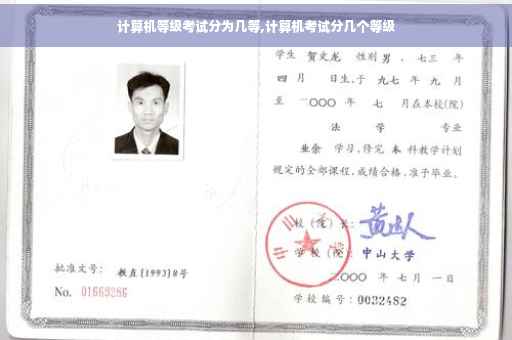 计算机等级考试分为几等,计算机考试分几个等级
学生 贺文龙 性别 男 、七三 年
四 月 日生,于 九七 年 九 月
至 二〇〇〇 年 七 月在本校(院)
法 学 专业
业余 学习,修完 本 科教学计划
规定的全部课程,成绩合格,准予毕业。
校(院)长:
学校(院): 中山大学
二〇〇〇 年 七 月 一 日
批准文号: 教直[1993]8号
No. 01669286
学校编号: 0032482